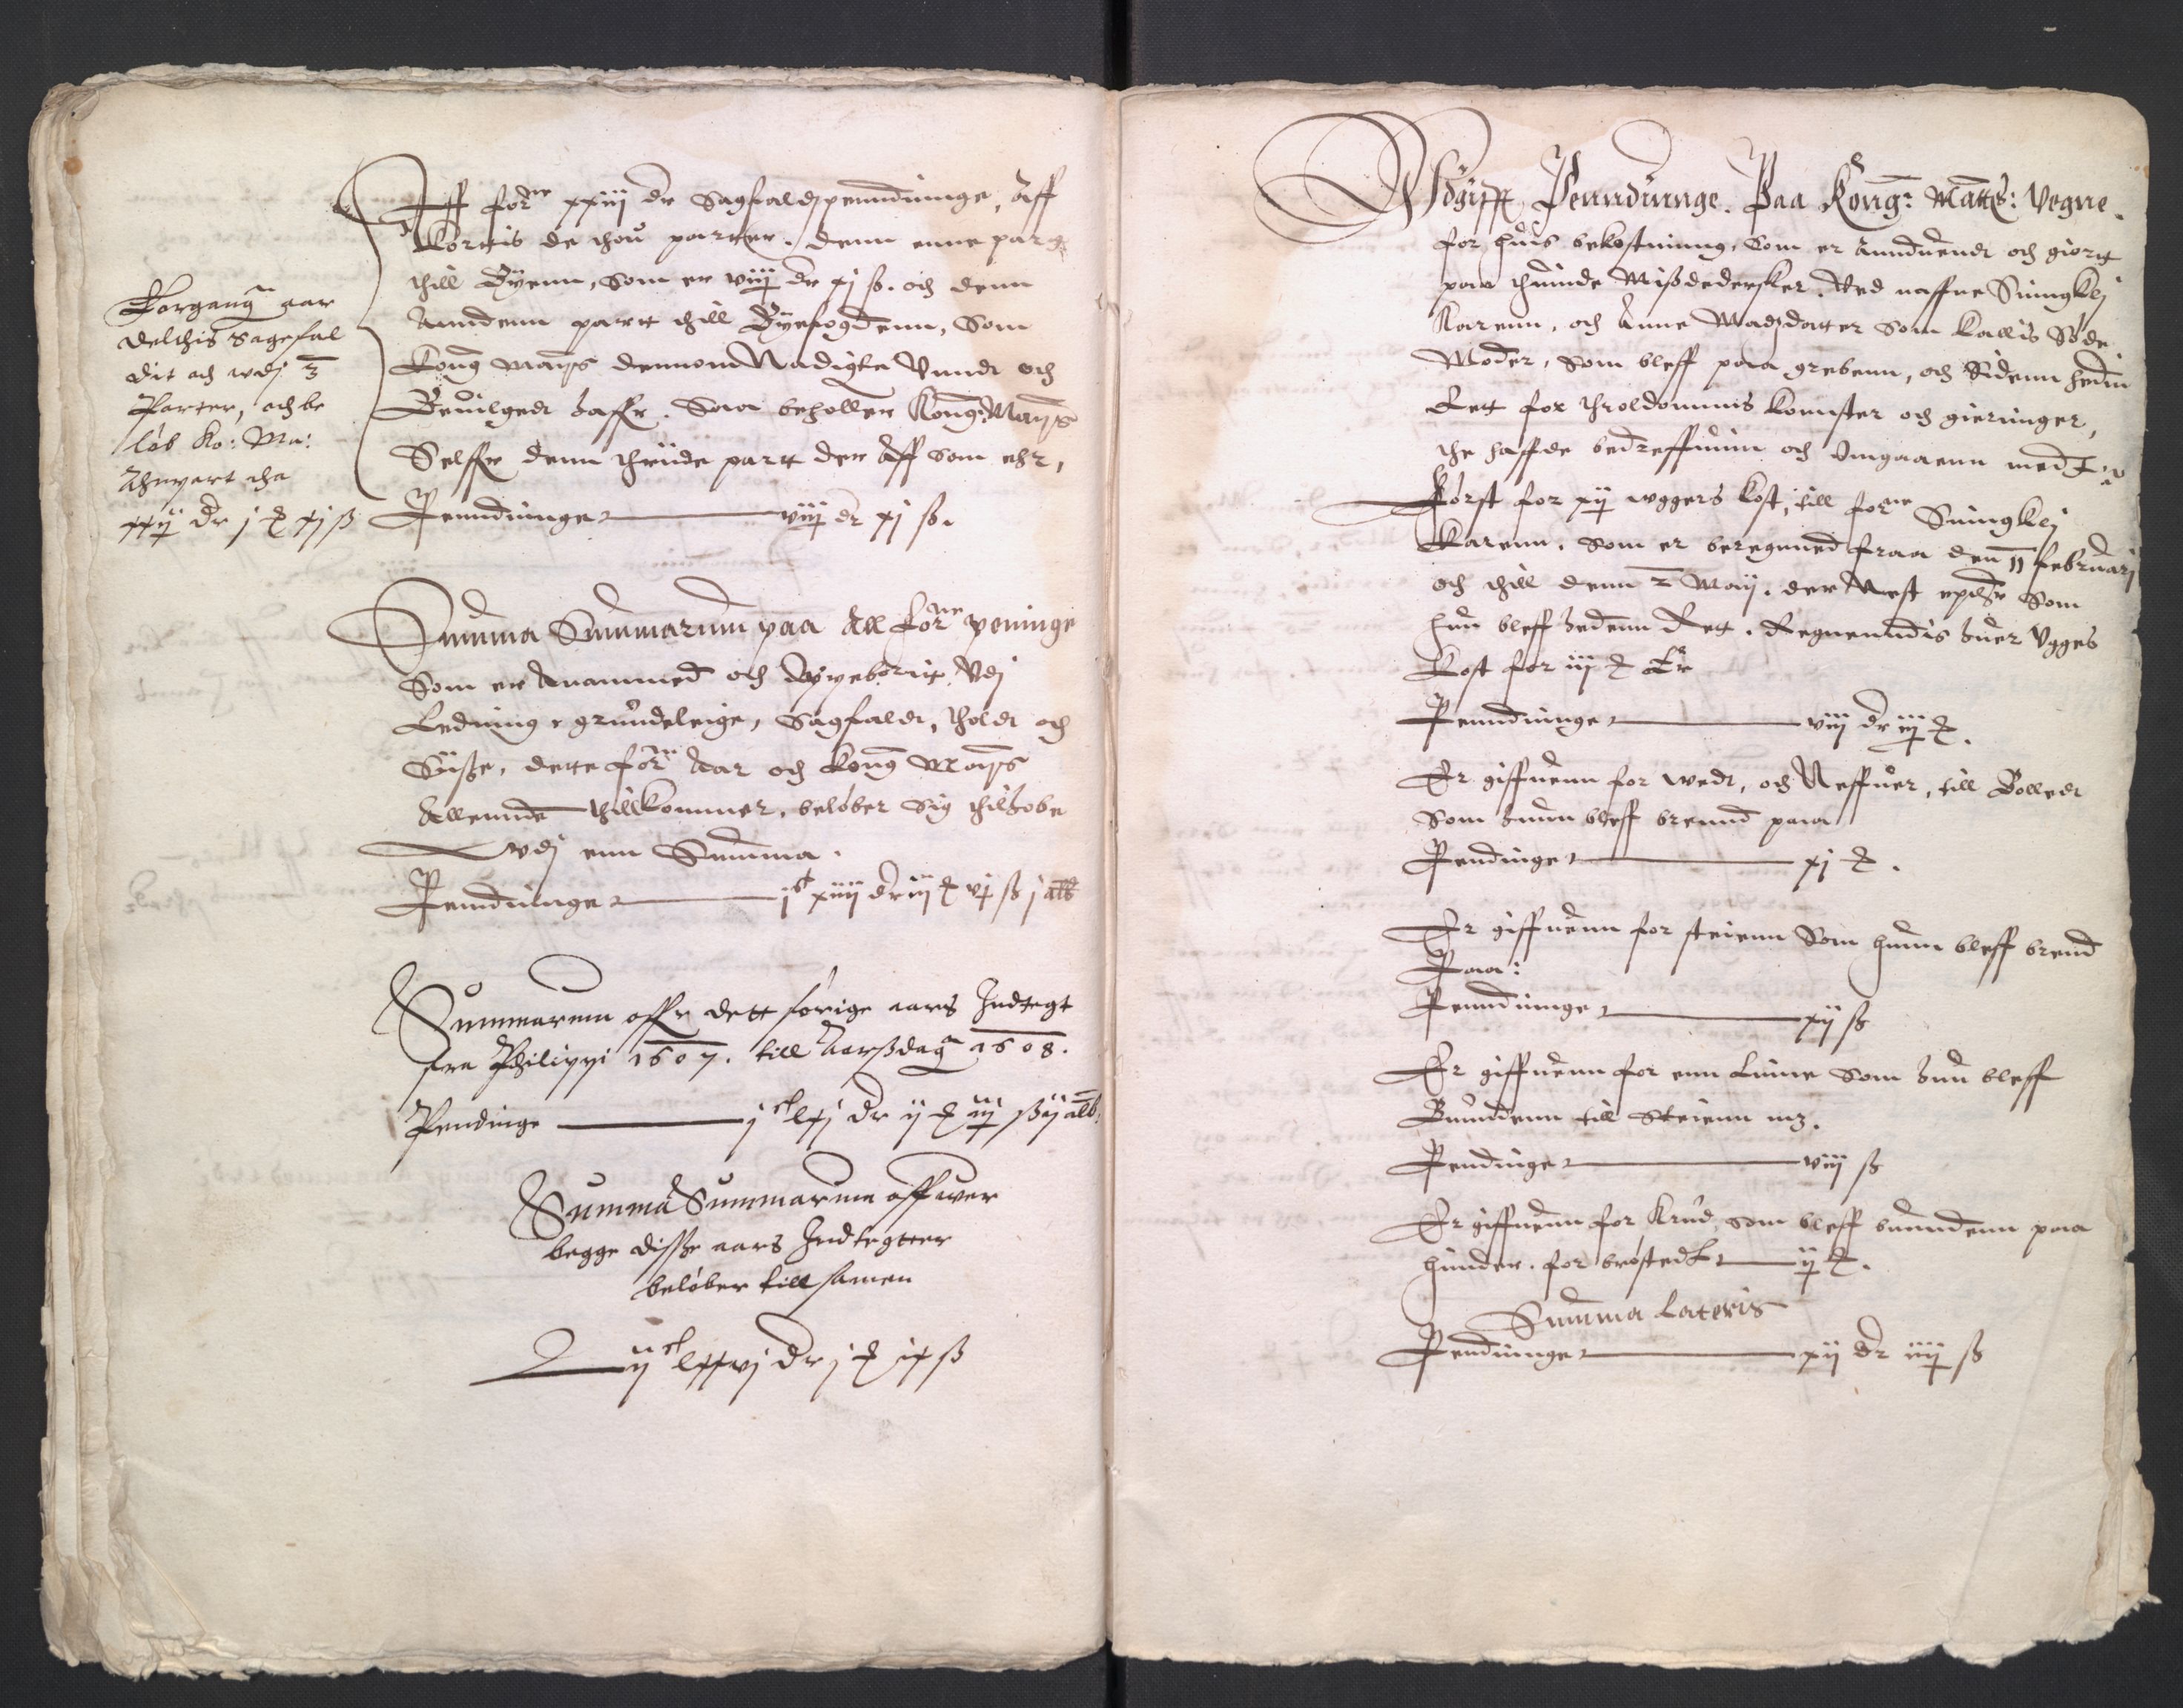 Aff forne xxiij dr Sagfaldspenndinnge, Aff
kortis de thou parter. denn enne part
thill Byenn, som er viij dr xj ß. och denn
Anndenn partt thill Byefogdenn, som
Kong Mayts dennom Naadigte Vnndt och
Beuilgedt haffr. Saa beholler Kong: Mayts
Selffr denn thriide partt der Aff som ehr,
Penndinnge viij dr xj ß.
Forgangn aar
delthis Sagefal
dit och udj 3
Parter, och be
løb Ko: Ma:
Anpart tha
xxij dr j xj ß
Summa Summarum paa All forne peninge
Som er Anammed och Oppeborit Vdj
Ledning, grundeleige, Sagfaldt, thold och
Siisse, dette forne Aar och Kong Mayts
Allenne thillkommer, beløber Sig thilhobe
vdj enn Summa.
Penndinnge j c xiiij dr iij vj ß j alb
Summarum offr dett forige aars Indtegt
fra Philippi 1607. till Aarsdagn 1608.
Pendinge j c lxj dr ij iij ß ij alb.
Summa Summarum offuer
begge disse aars Indtegtter
beløber till samen
ij c lxxvj dr j ix ß
Vdgifft Penndinnge. Paa Kong: Matts: Vegne.
for huis bekostning, som er Annduendt och giortt
paa thuinde Missdedersker. Ved naffne Suingklj
Karenn, och Anne Madzdatter som kallis Søde
Moder, som bleff paa grebenn, och Sidenn hedin
Rett for throldommis konnster och gierninger,
the haffde bedreffuinn och Omgaaenn med
Først for xij vggers kost, till forne Suingklj
Karenn. som er beregnned fraa den 11 februarij
och thill denn 2 Maij. der Nest epther Som
hun bleff hedenn Ret. Regnenndis huer Vgges
kost for iij Er
Penndinnge viij dr iij
Er giffuenn for wedt, och Neffuer, till Bolledt
som hunn bleff brennd paa
Pendinge xj
Er giffuenn for stienn Som hunn bleff brend
Paa:
Penndinnge xij ß
Er giffuenn for enn Linne Som hun bleff
Bunndenn till Steienn m3.
Pendinge viij ß
Er giffuenn for Krud, som bleff bunndenn paa
hinder. for brøstedt ij
Summa Lateris
Pendinnge xij dr iiij ß